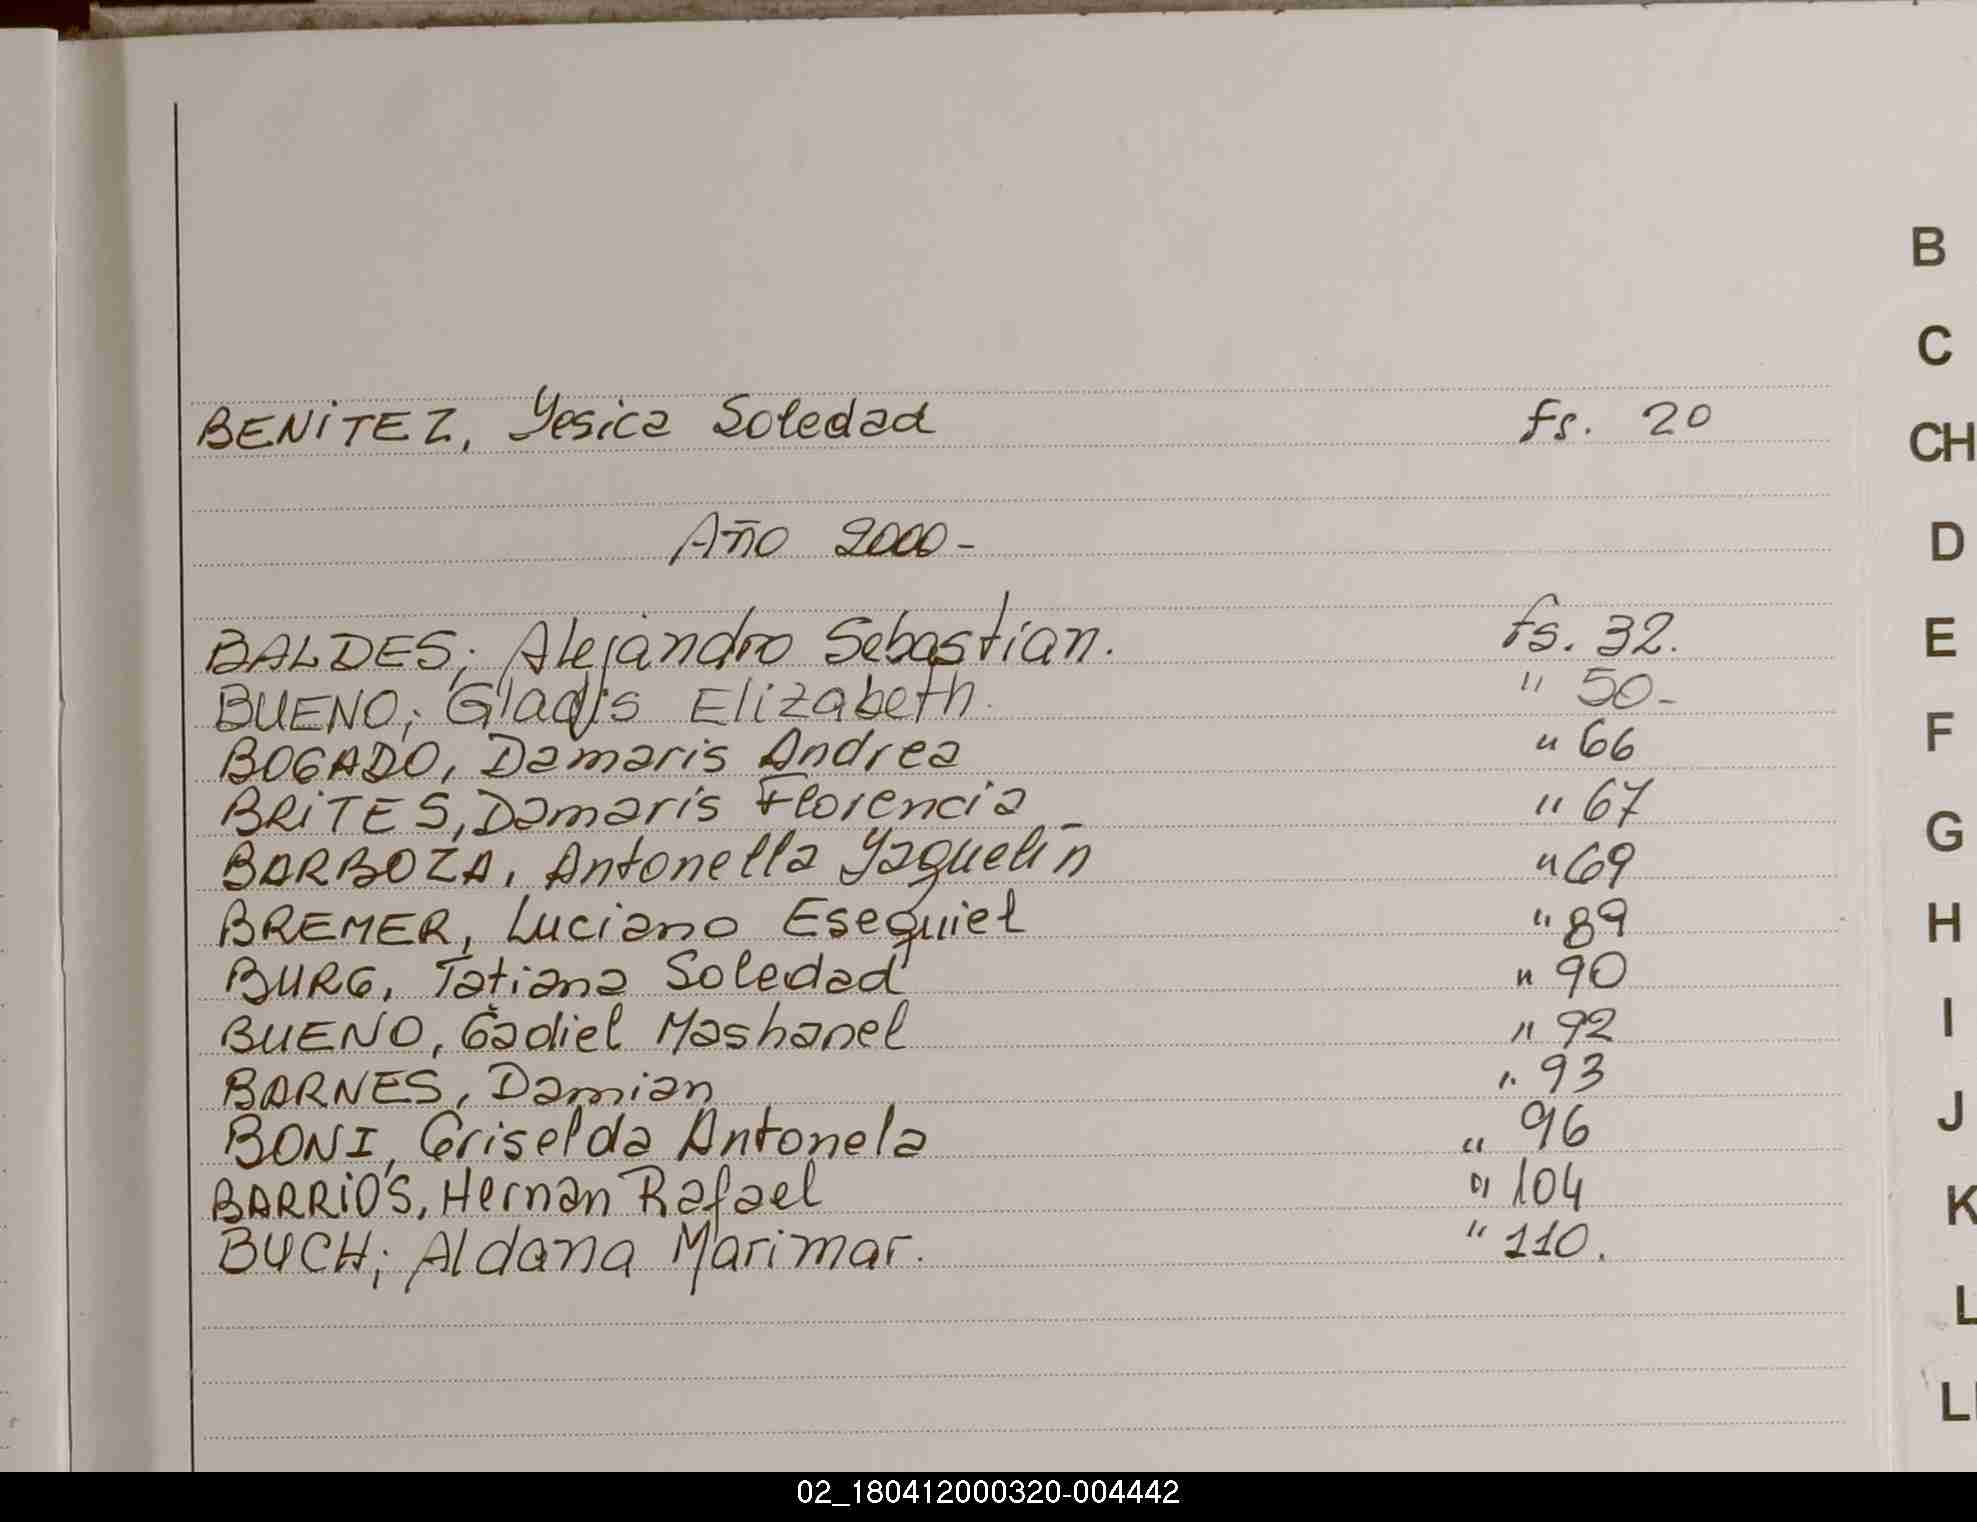 BENITEZ, Yesica Soledad fs. 20
Año 2000-
BALDES; Alejandro Sebastian. fs. 32.
BUENO; Gladis Elizabeth. " 50-
BOGADO, Damaris Andrea " 66
BRITES, Damaris Florencia " 67
BARBOZA, Antonella Yaquelin " 69
BREMER, Luciano Esequiel " 89
BURG, Tatiana Soledad " 90
BUENO, Gadiel Mashanel " 92
BARNES, Damian " 93
BONI, Griselda Antonela " 96
BARRIOS, Hernan Rafael " 104
BUCH; Aldana Marimar. " 110.
B
C
CH
D
E
F
G
H
I
J
K
L
LL
02_180412000320-004442